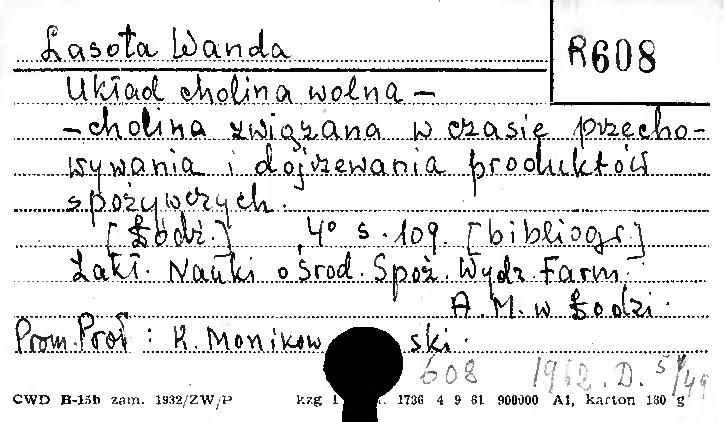 Lasota Wanda
R608
Układ cholina wolna –
– cholina związana w czasie przecho-
wywania i dojrzewania produktów
spożywczych.
[Łódź.] 4° s. 109. [bibliogr.]
Zakł. Nauki o Środ. Spoż. Wydz. Farm.
A. M. w Łodzi.
Prom. Prof : K. Monikowski.
608 1962. D.
CWD B-15b zam. 1932/ZW/P kzg 1736 4 9 61 900000 A1, karton 160 g